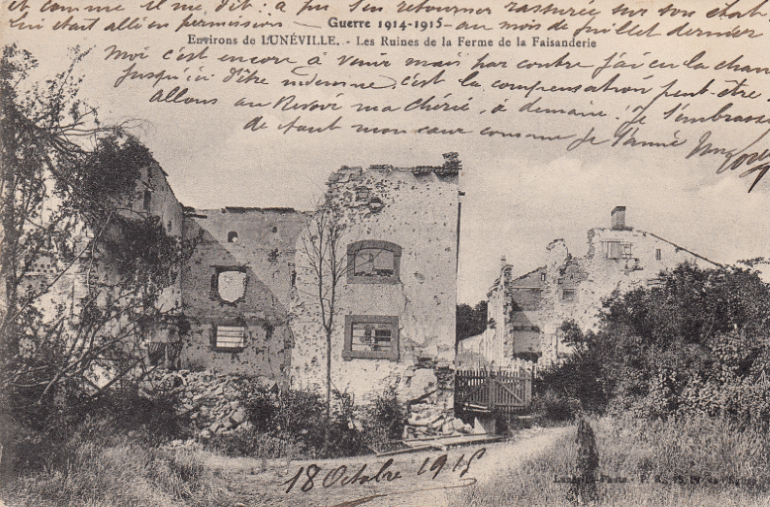 et comme il me dit : a pu s'en retourner rassurée sur son état
Guerre 1914-1915
Lui était allé en permission au mois de Juillet dernier
Environs de LUNÉVILLE. - Les Ruines de la Ferme de la Faisanderie
Moi c'est encore à venir mais par contre j'ai eu la chan
jusqu'ici d'être indemne c'est la compensation peut-être.
allons au Revoir ma chérie, à demain. Je t'embrasse
de tout mon cœur comme je t'aime
18 Octobre 1915